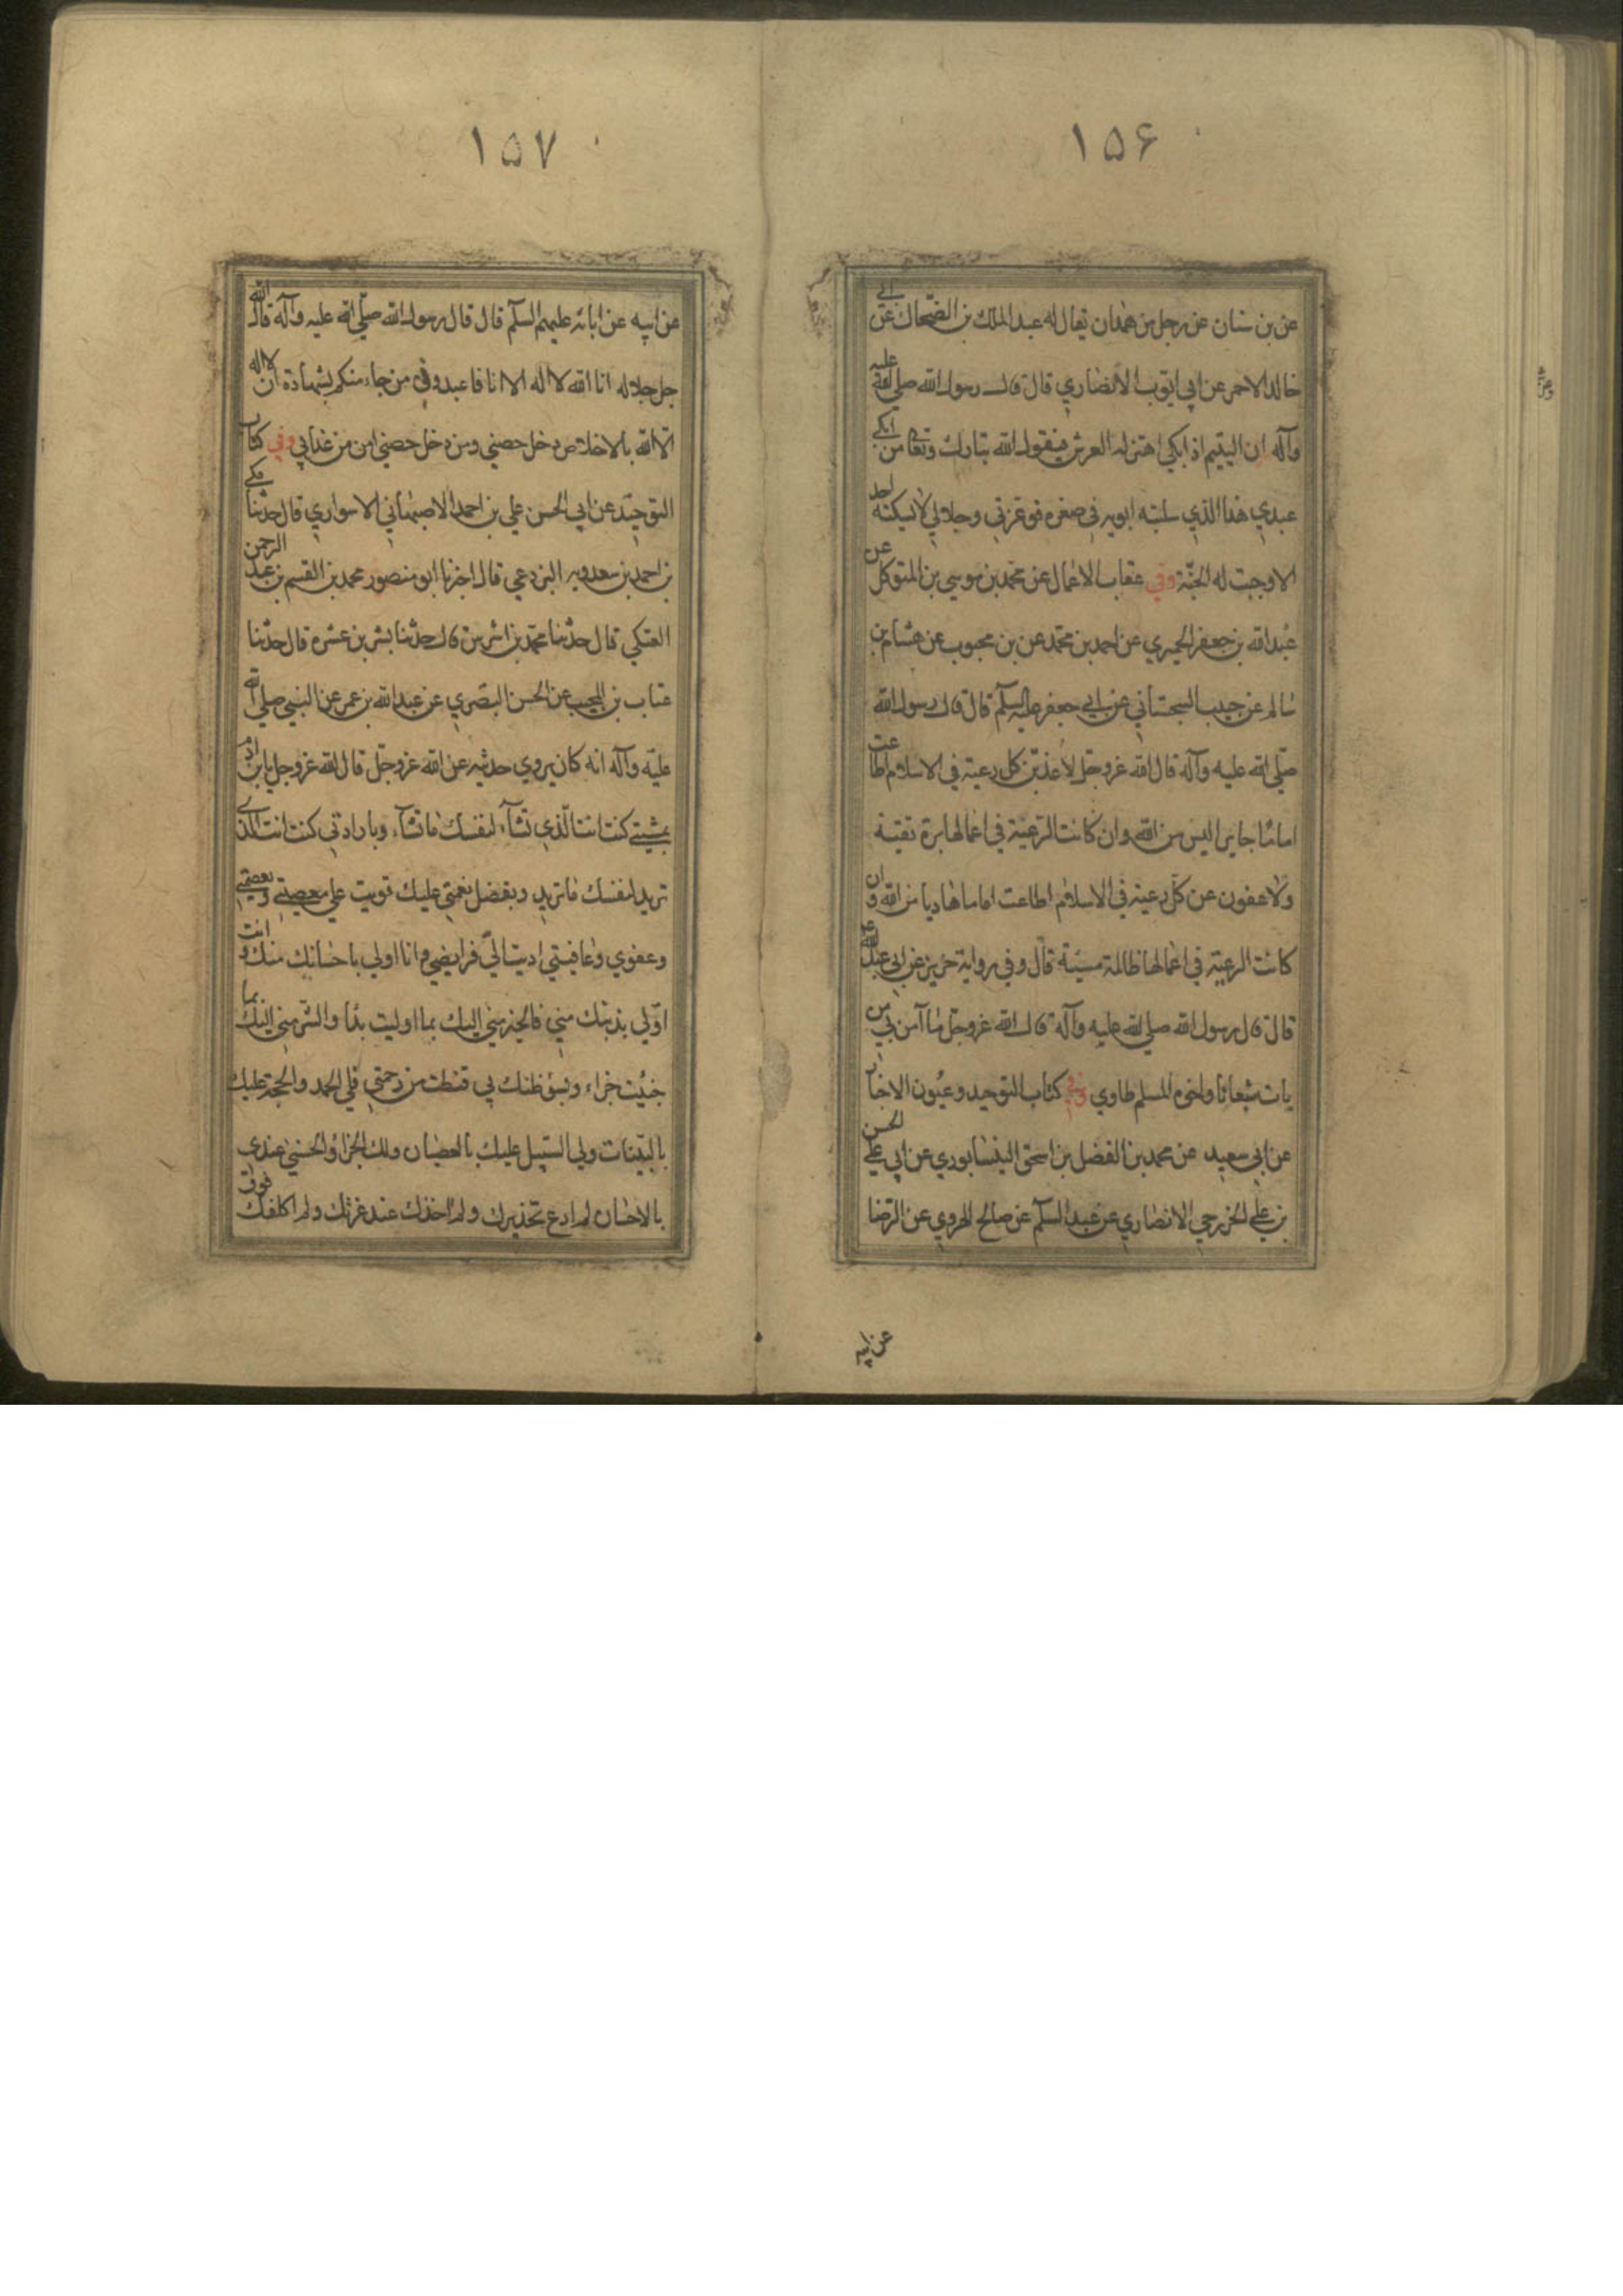 ۱۵۶
عن بن سنان عن رجل من همدان يقال له عبد الملك بن الضحاك عن ابي
خالد الاحمر عن ابي ايوب الانصاري قال قال رسول الله صلي الله عليه
وآله ان اليتيم اذا بكي اهتز له العرش فيقول الله تبارك وتعا من ابكي
عبدي هذا الذي سلبته ابويه في صغره فوعزتي وجلالي لا يسكته احد
الا وجبت له الجنة وفي عقاب الاعمال عن محمد بن موسي بن المتوكل عن
عبد الله بن جعفر الحميري عن احمد بن محمد عن بن محبوب عن هشام بن
سالم عن حبيب السجستاني عن ابي جعفر عليه السلم قال قال رسول الله
صلي الله عليه وآله قال الله عز وجل لاعذبن كل رعية في الاسلام اطاعت
اماما جايرا ليس من الله وان كانت الرعية في اعمالها برة تقية
ولاعفون عن كل رعية في الاسلام اطاعت اماما هاديا من الله وان
كانت الرعية في اعمالها ظالمة مسيئة قال وفي رواية حريز عن ابي عبد الله ع
قال قال رسول الله صلي الله عليه وآله قال الله عز وجل ما آمن بي من
بات شبعانا واخوه المسلم طاوي وفي كتاب التوحيد وعيون الاخبار
عن ابي سعيد عن محمد بن الفضل بن اسحق النيسابوري عن ابي علي الحسن
بن علي الخزرجي الانصاري عن عبد السلم عن صالح الهروي عن الرضا
عن ابيه
۱۵۷
عن ابيه عن ابائه عليهم السلم قال قال رسول الله صلي الله عليه وآله قال الله
جل جلاله انا الله لا اله الا انا فاعبدوني من جاء منكم بشهادة ان لا اله
الا الله بالاخلاص دخل حصني ومن دخل حصني امن من عذابي وفي كتاب
التوحيد عن ابي الحسن علي بن احمد الاصبهاني الاسواري قال حدثنا مكي
بن احمد بن سعدويه البزدعي قال اخبرنا ابو منصور محمد بن القسم بن عبد الرحمن
العتكي قال حدثنا محمد بن اشرس قال حدثنا بشر بن عشره قال حدثنا
عتاب بن المحيب عن الحسن البصري عن عبد الله بن عمر عن النبي صلي الله
عليه وآله انه كان يروي حديثه عن الله عز وجل قال الله عز وجل يا بن ادم
بمشيتي كنت انت الذي تشآء لنفسك ما تشآء وبارادتي كنت انت الذي
تريد لنفسك ما تريد وبفضل نعمتي عليك قويت علي معصيتي وبعصمتي
وعفوي وعافيتي اديت الي فرايضي وانا اولي باحسانك منك وانت
اولي بذنبك مني فالخير مني اليك بما اوليت بدا والشر مني اليك بما
جنيت جزاء وبسؤ ظنك بي قنطت من رحمتي فلي الحمد والحجة عليك
بالبينات ولي السبيل عليك بالعصيان ولك الجزاؤ الحسني عندي
بالاحسان لم ادع تحذيرك ولم اخذك عند غرتك ولم اكلفك فوق